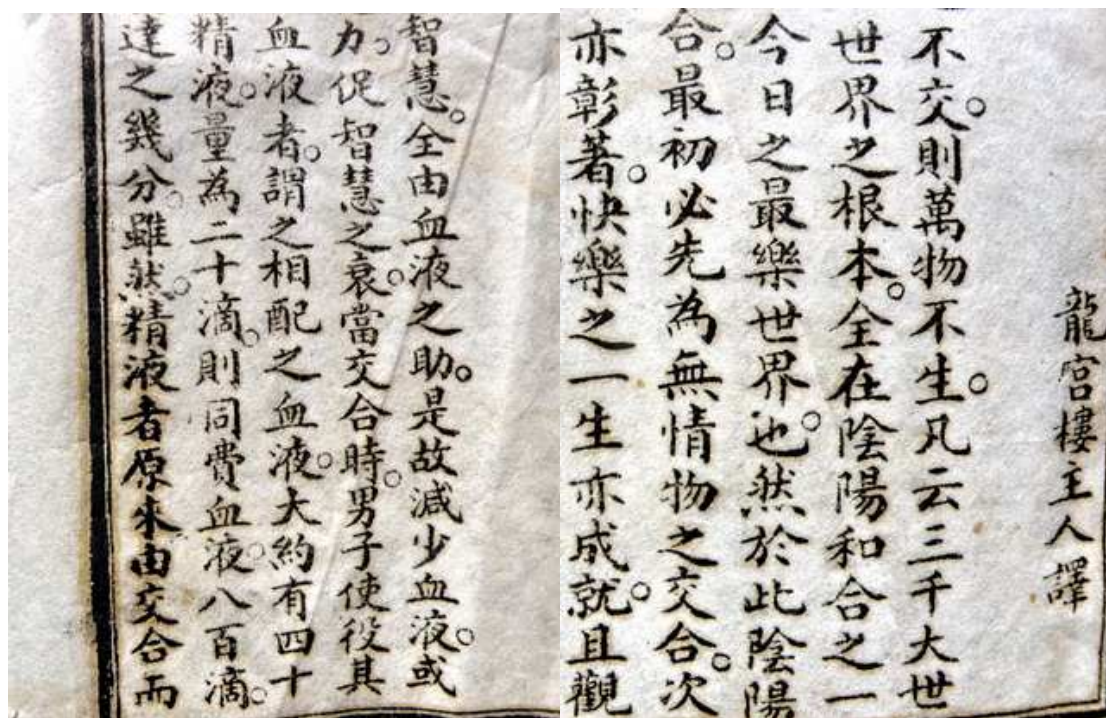 龍宮樓主人譯
不交。則萬物不生。凡云三千大世
世界之根本。全在陰陽和合之一
今日之最樂世界也。然於此陰陽
合。最初必先為無情物之交合。次
亦彰著。快樂之一生亦成就。且觀
智慧。全由血液之助。是故減少血液。或
力。促智慧之衰。當交合時。男子使役其
血液者。謂之相配之血液。大約有四十
精液。量為二十滴。則同費血液。八百滴。
達之幾分。雖然。精液者原來由交合而